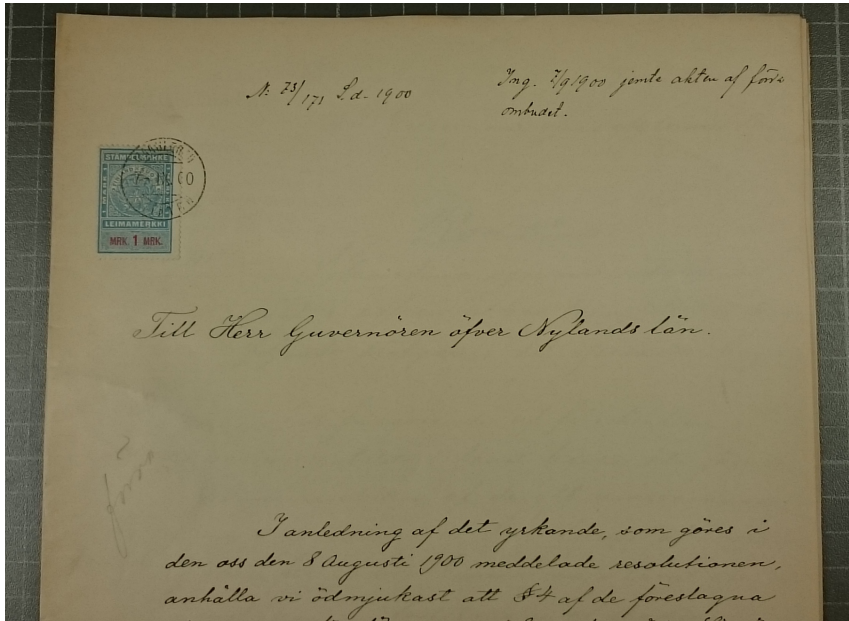 No 73/171 L.d. 1900
Ing. 7/9 1900 jemte akten af förra
ombudet.
STÄMPELMÄRKE
LEIMAMERKKI
MRK. 1 MRK.
Till Herr Guvernören öfver Nylands län.
I anledning af det yrkande, som göres i
den oss den 8 Augusti 1900 meddelade resolutionen,
anhålla vi ödmjukast att § 4 af de föreslagna